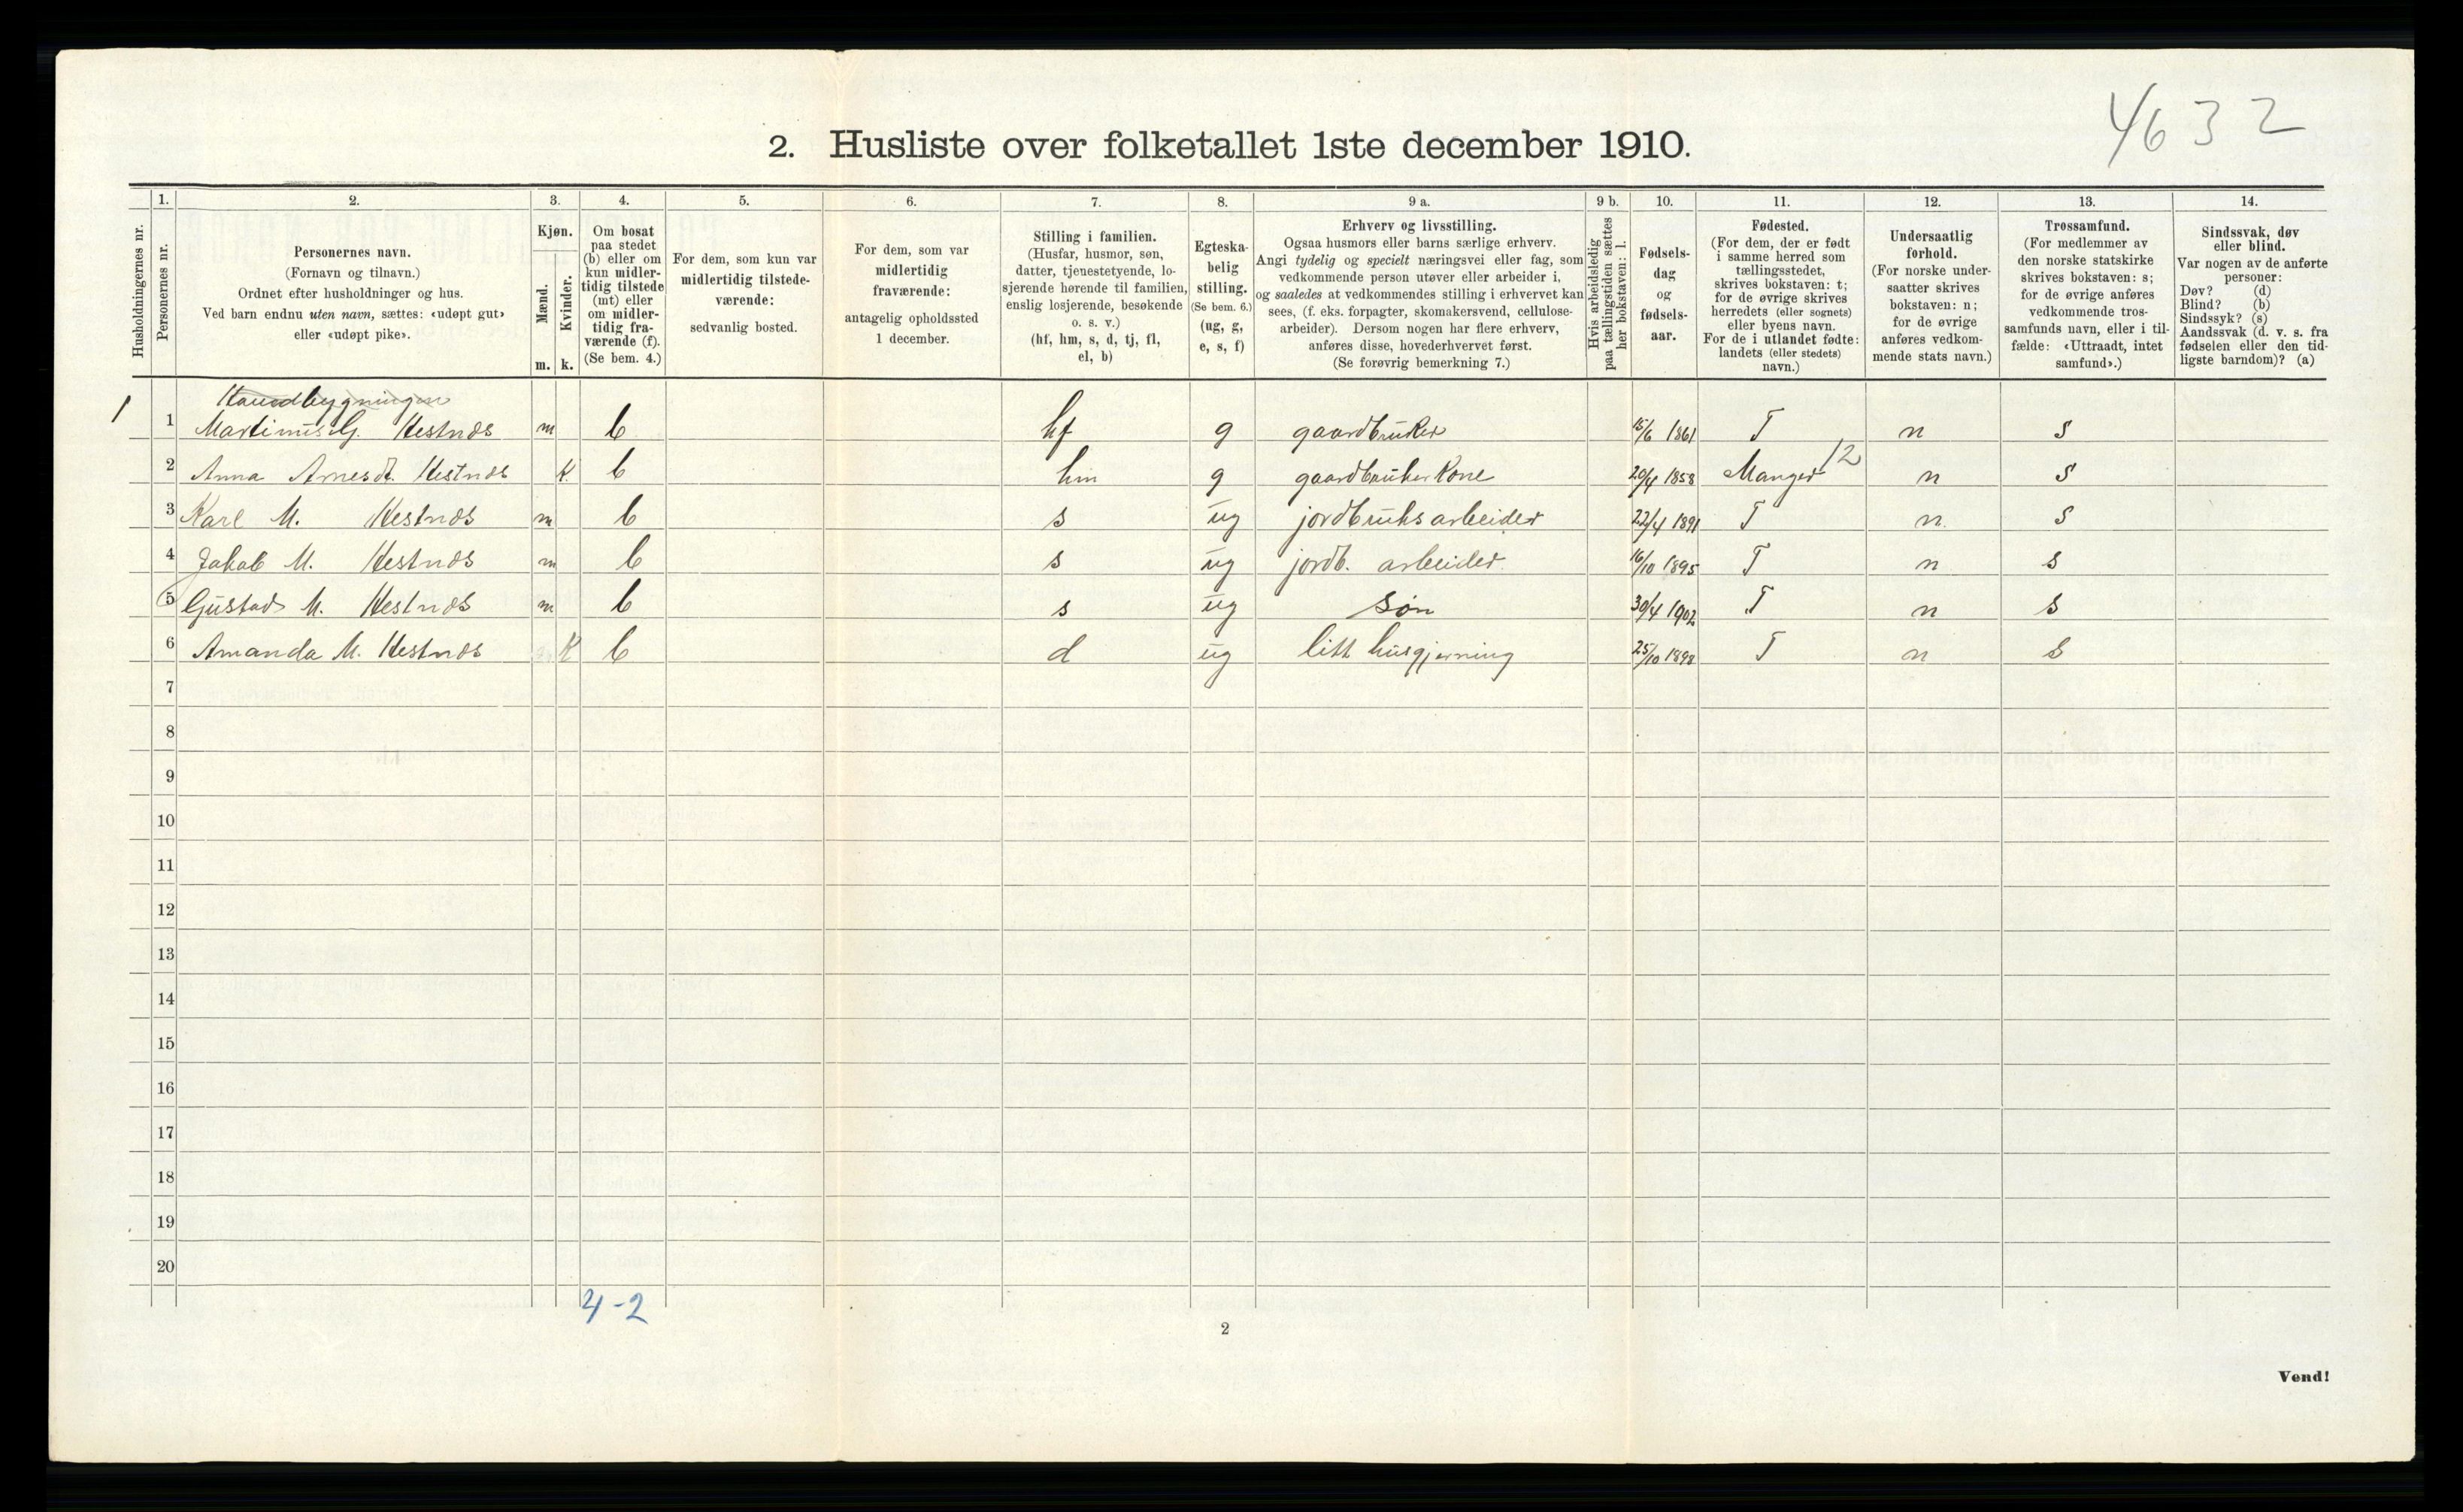 4632
2. Husliste over folketallet 1ste december 1910.
Husholdningernes nr.
1.
Personernes nr.
2.
Personernes navn.
(Fornavn og tilnavn.)
Ordnet efter husholdninger og hus.
Ved barn endnu uten navn, sættes: «udøpt gut»
eller «udøpt pike».
3.
Kjøn.
Mænd.
Kvinder.
m. k.
4.
Om bosat
paa stedet
(b) eller om
kun midler-
tidig tilstede
(mt) eller
om midler-
tidig fra-
værende (f).
(Se bem. 4.)
5.
For dem, som kun var
midlertidig tilstede-
værende:
sedvanlig bosted.
6.
For dem, som var
midlertidig
fraværende:
antagelig opholdssted
1 december.
7.
Stilling i familien.
(Husfar, husmor, søn,
datter, tjenestetyende, lo-
sjerende hørende til familien,
enslig losjerende, besøkende
o. s. v.)
(hf, hm, s, d, tj, fl,
el, b)
8.
Egteska-
belig
stilling.
(Se bem. 6.)
(ug, g,
e, s, f)
9 a.
Erhverv og livsstilling.
Ogsaa husmors eller barns særlige erhverv.
Angi tydelig og specielt næringsvei eller fag, som
vedkommende person utøver eller arbeider i,
og saaledes at vedkommendes stilling i erhvervet kan
sees, (f. eks. forpagter, skomakersvend, cellulose-
arbeider). Dersom nogen har flere erhverv,
anføres disse, hovederhvervet først.
(Se forøvrig bemerkning 7.)
9 b.
Hvis arbeidsledig
paa tællingstiden sættes
her bokstaven: l.
10.
Fødsels-
dag
og
fødsels-
aar.
11.
Fødested.
(For dem, der er født
i samme herred som
tællingsstedet,
skrives bokstaven: t;
for de øvrige skrives
herredets (eller sognets)
eller byens navn.
For de i utlandet fødte:
landets (eller stedets)
navn.)
12.
Undersaatlig
forhold.
(For norske under-
saatter skrives
bokstaven: n;
for de øvrige
anføres vedkom-
mende stats navn.)
13.
Trossamfund.
(For medlemmer av
den norske statskirke
skrives bokstaven: s;
for de øvrige anføres
vedkommende tros-
samfunds navn, eller i til-
fælde: «Uttraadt, intet
samfund».)
14.
Sindssvak, døv
eller blind.
Var nogen av de anførte
personer:
Døv? (d)
Blind? (b)
Sindssyk? (s)
Aandssvak (d. v. s. fra
fødselen eller den tid-
ligste barndom)? (a)
1 1 Martinus G. Hestnæs m b hf g gaardbruker 15/6 1861 T n s
2 Anna Arnesdt. Hestnæs K b hm g gaardbruker Kone 20/4 1858 Manger 12 n s
3 Karl M. Hestnæs m b s ug jordbruksarbeider 22/4 1891 T n s
4 Jakob M. Hestnæs m b s ug jordb. arbeider 16/10 1895 T n s
5 Gustav M. Hestnæs m b s ug søn 30/4 1902 T n s
6 Amanda M. Hestnæs K b d ug litt husgjerning 25/10 1898 T n s
7
8
9
10
11
12
13
14
15
16
17
18
19
20
4-2
2
Vend!